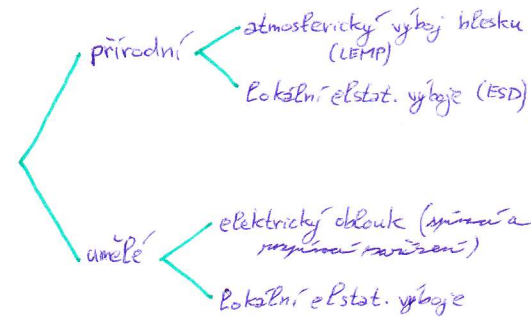 přírodní
atmosferický výboj blesku
(LEMP)
lokální elstat. výboje (ESD)
umělé
elektrický oblouk (spínací a
rozpínací zařízení)
lokální elstat. výboje